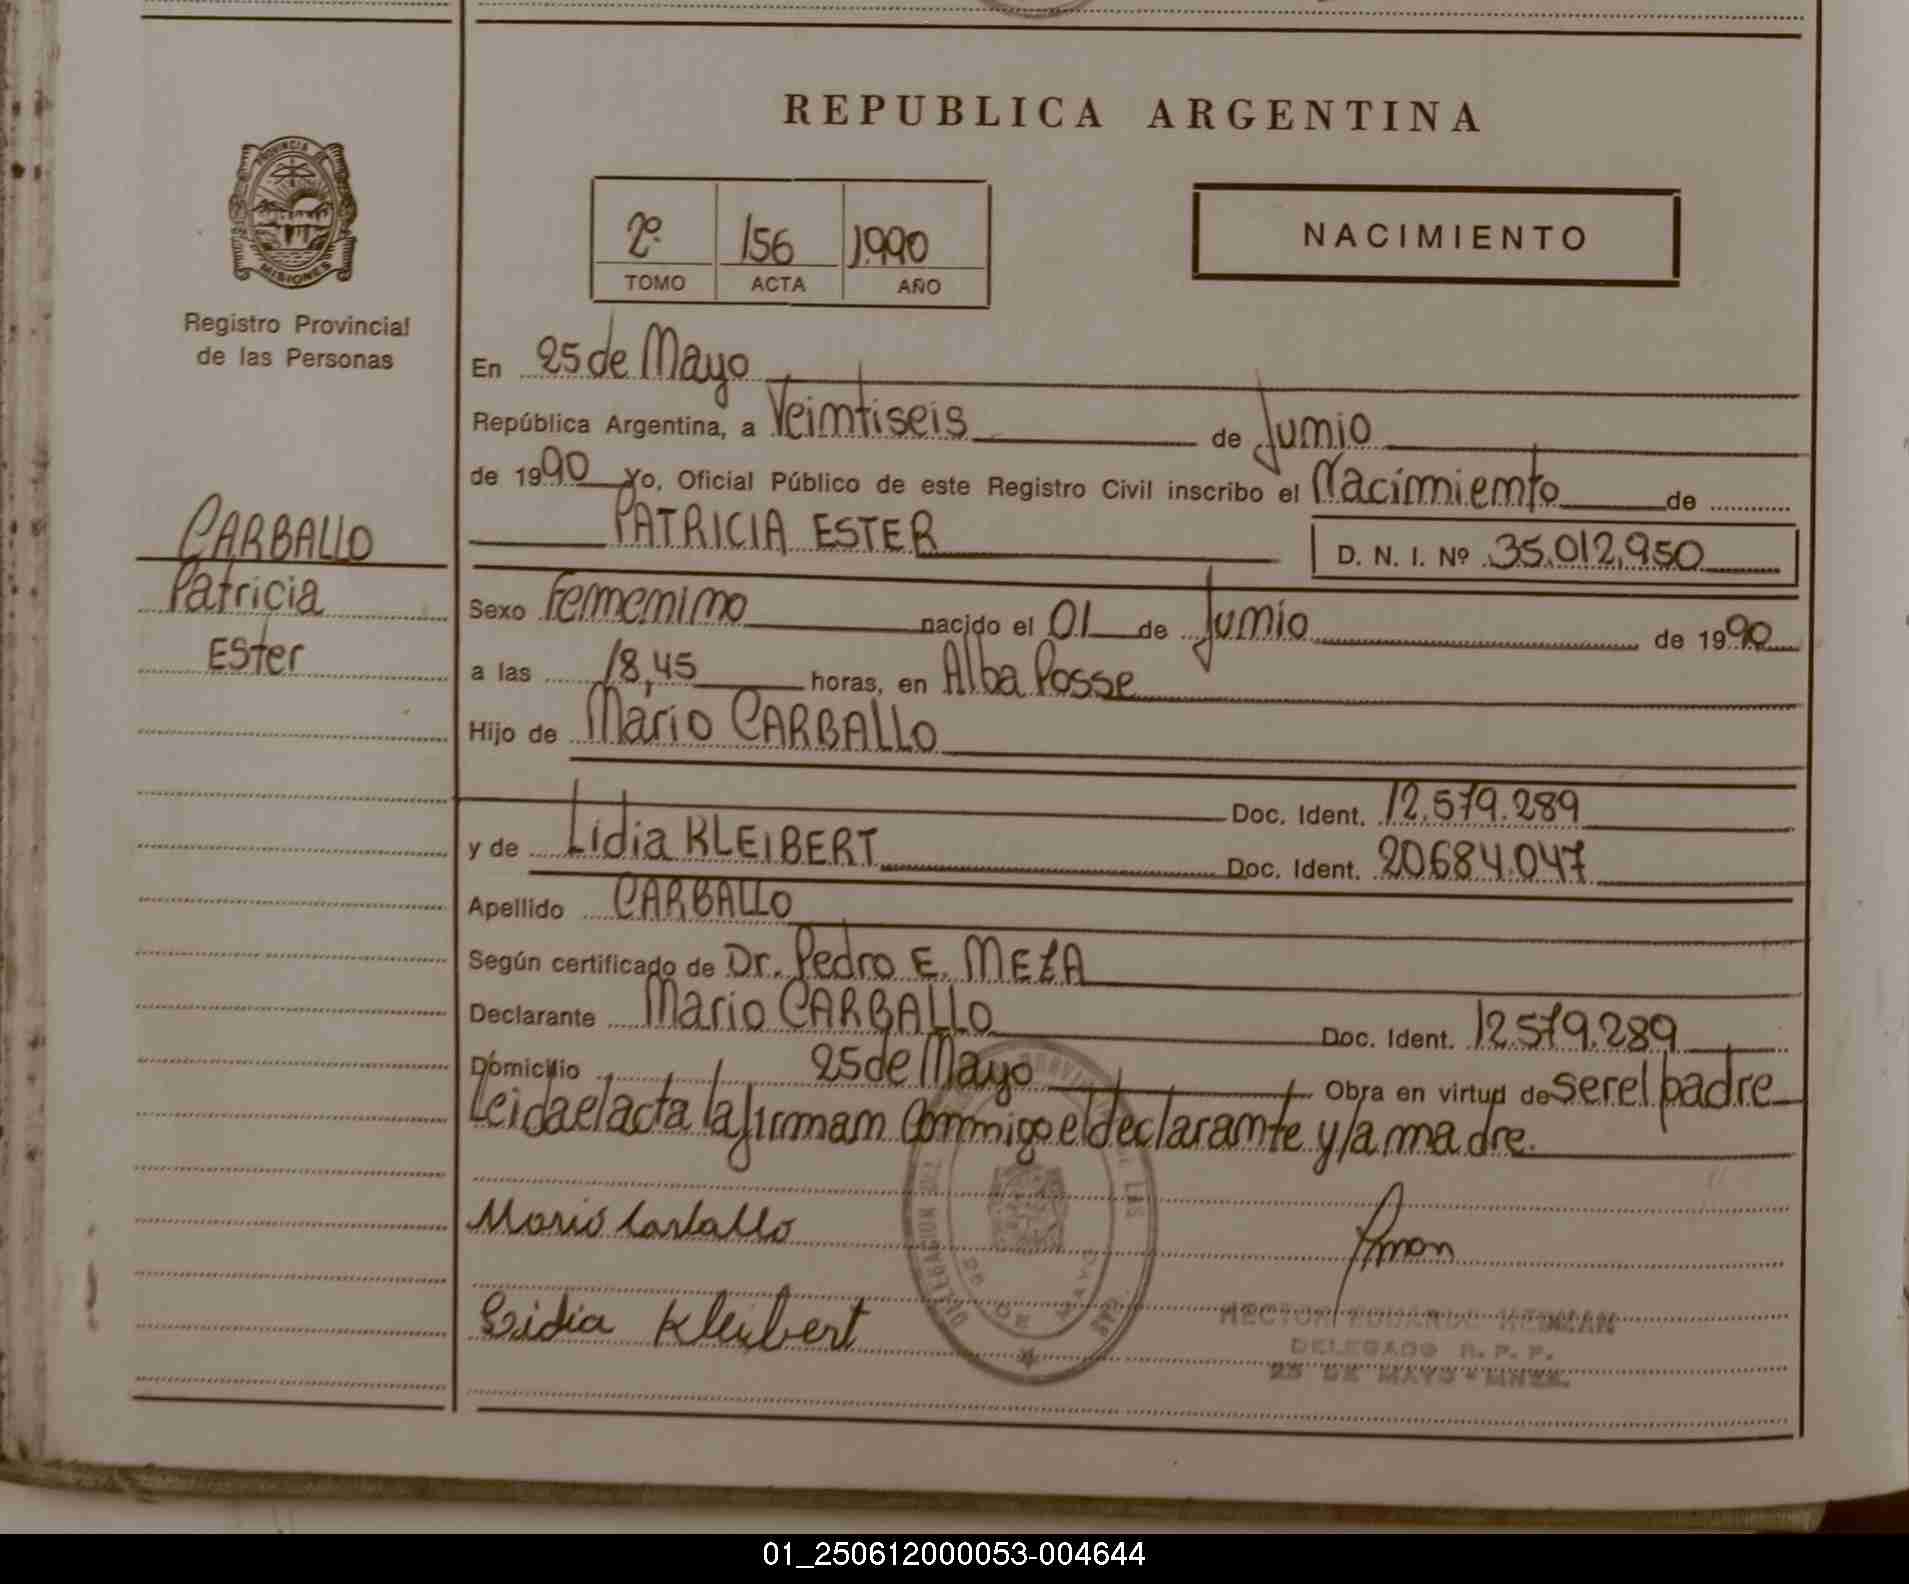 REPUBLICA ARGENTINA
PROVINCIA DE
MISIONES
Registro Provincial
de las Personas
2º 156 1990
TOMO ACTA AÑO
NACIMIENTO
En 25 de Mayo
República Argentina, a Veintiseis de Junio
de 1990 Yo, Oficial Público de este Registro Civil inscribo el Nacimiento de
PATRICIA ESTER D. N. I. Nº 35.012.950
CARBALLO
Patricia
Ester
Sexo Femenino nacido el 01 de Junio de 1990
a las 18,45 horas, en Alba Posse
Hijo de Mario CARBALLO
Doc. Ident. 12.579.289
y de Lidia KLEIBERT Doc. Ident. 20684.047
Apellido CARBALLO
Según certificado de Dr. Pedro E. MEZA
Declarante Mario CARBALLO Doc. Ident. 12.579.289
Domicilio 25 de Mayo Obra en virtud de ser el padre
Leida el acta la firman Conmigo el declarante y la madre.
Mario Carballo
Lidia Kleibert
DELEGACION
25 DE MAYO
HECTOR EDUARDO
DELEGADO R. P. P.
25 DE MAYO - MNES.
01_250612000053-004644